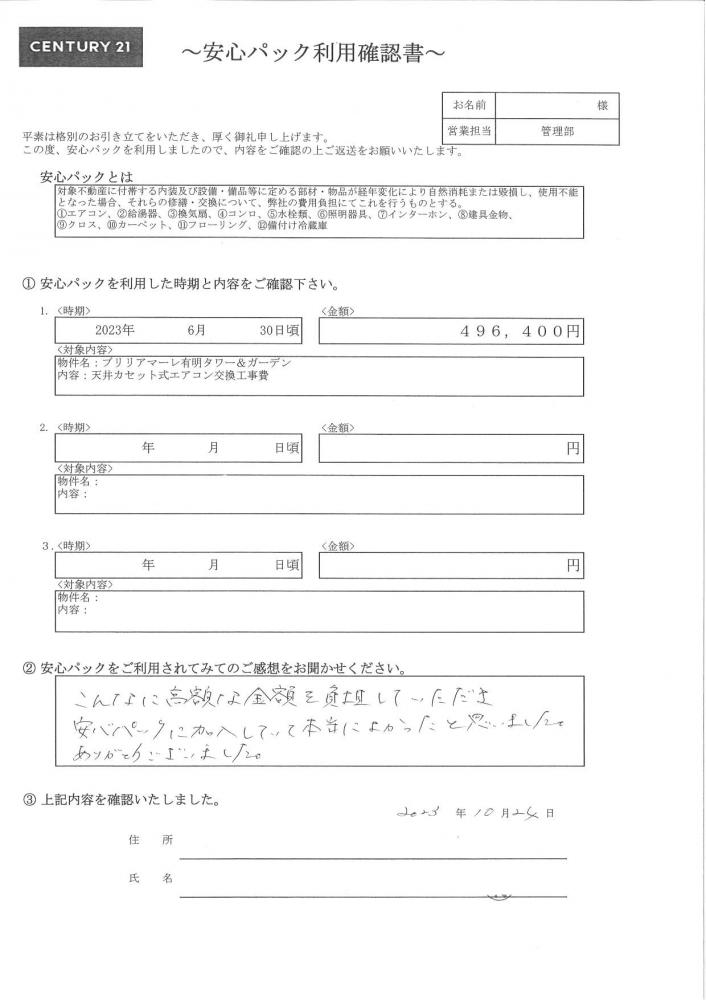 CENTURY 21
～安心パック利用確認書～
お名前 様
営業担当 管理部
平素は格別のお引き立てをいただき、厚く御礼申し上げます。
この度、安心パックを利用しましたので、内容をご確認の上ご返送をお願いいたします。
安心パックとは
対象不動産に付帯する内装及び設備・備品等に定める部材・物品が経年変化により自然消耗または毀損し、使用不能
となった場合、それらの修繕・交換について、弊社の費用負担にてこれを行うものとする。
①エアコン、②給湯器、③換気扇、④コンロ、⑤水栓類、⑥照明器具、⑦インターホン、⑧建具金物、
⑨クロス、⑩カーペット、⑪フローリング、⑫備付け冷蔵庫
① 安心パックを利用した時期と内容をご確認下さい。
1. <時期> <金額>
2023年 6月 30日頃 496,400円
<対象内容>
物件名：ブリリアマーレ有明タワー＆ガーデン
内容：天井カセット式エアコン交換工事費
2. <時期> <金額>
年 月 日頃 円
<対象内容>
物件名：
内容：
3. <時期> <金額>
年 月 日頃 円
<対象内容>
物件名：
内容：
② 安心パックをご利用されてみてのご感想をお聞かせください。
こんなに高額な金額を負担していただき
安心パックに加入していて本当によかったと思いました。
ありがとうございました。
③ 上記内容を確認いたしました。
2023 年 10 月 24 日
住 所
氏 名